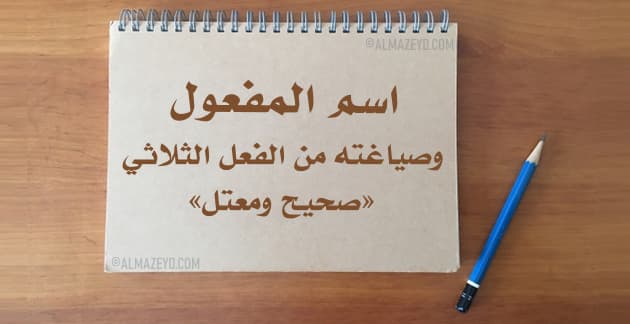 ©ALMAZEYD.COM
اسم المفعول
وصياغته من الفعل الثلاثي
«صحيح ومعتل»
©ALMAZEYD.COM